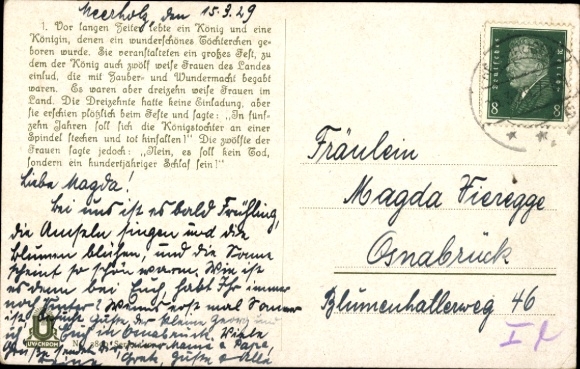 Meerholz, den 15.3.29
1. Vor langen Zeiten lebte ein König und eine
Königin, denen ein wunderschönes Töchterchen ge-
boren wurde. Sie veranstalteten ein großes Fest, zu
dem der König auch zwölf weise Frauen des Landes
einlud, die mit Zauber- und Wundermacht begabt
waren. Es waren aber dreizehn weise Frauen im
Land. Die Dreizehnte hatte keine Einladung, aber
sie erschien plötzlich beim Feste und sagte: „In fünf-
zehn Jahren soll sich die Königstochter an einer
Spindel stechen und tot hinfallen!" Die zwölfte der
Frauen sagte jedoch: „Nein, es soll kein Tod,
sondern ein hundertjähriger Schlaf sein!"
Liebe Magda!
Bei uns ist es bald Frühling,
die Amseln singen und die
Blumen blühen, und die Sonne
scheint so schön warm. Wie ist
es denn bei Euch, habt Ihr immer
noch Winter? Wenns erst mal Sommer
ist der kleine Georg und
ich Euch in Osnabrück. Viele
Grüße Mama & Papa,
Deutsches Reich
8 8
Fräulein
Magda Vieregge
Osnabrück
Blumenhallerweg 46
I
U
UVACHROM